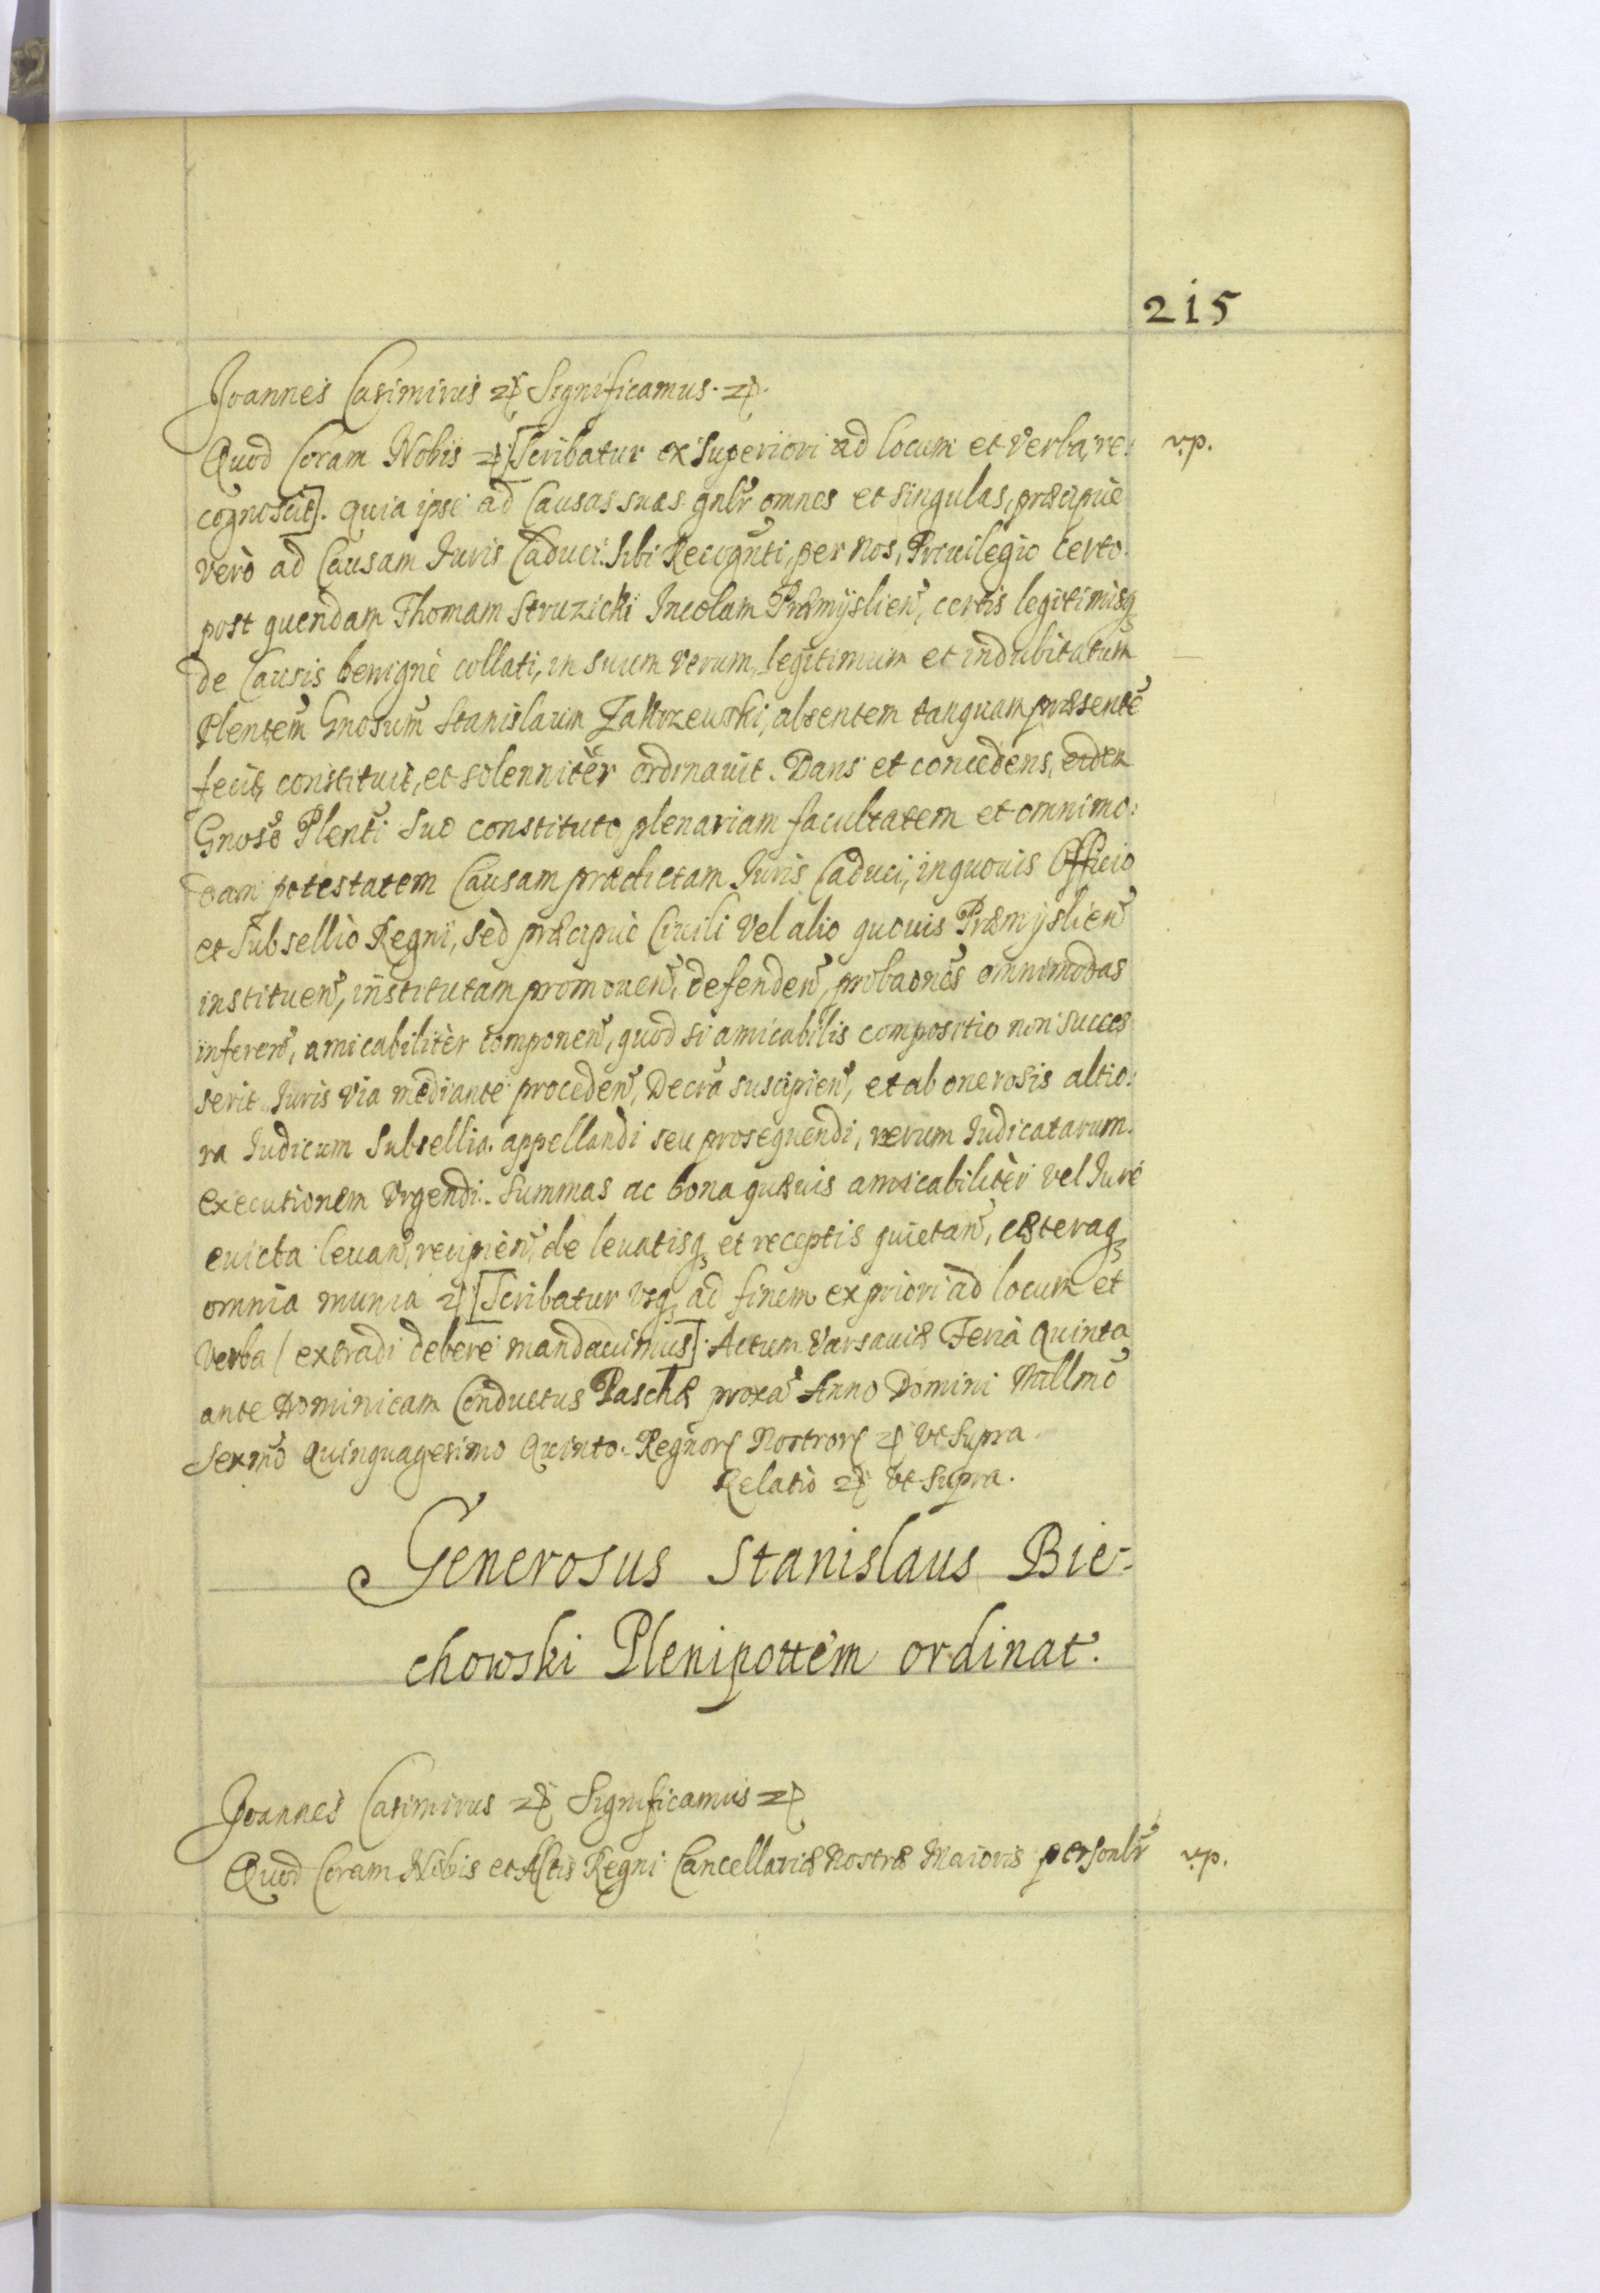 215
Joannes Casimirus etc Significamus. etc.
Quod Coram Nobis etc [Scribatur ex Superiori ad locum et Verba, re: v.p.
cognoscit]. quia ipse ad Causas suas gnlr̃ omnes et singulas, præcipuè
verò ad Causam Iuris Caduci sibi Recognti, per Nos, Priuilegio certo
post quendam Thomam Struzicki Incolam Præmÿslien̄, certis legitimisq;
de Causis benignè collati, in suum verum, legitimum et indubitatum
Plentem Gnosum Stanislaum Zakrzewski, absentem tanquam præsentẽ
fecit, constituit, et solenniter ordinauit. Dans et concedens, eidem
Gnoso Plenti suo constituto plenariam facultatem et omnimo:
dam potestatem Causam prædictam Iuris Caduci, in quouis Officio
et Subsellio Regni, sed præcipuè Ciuili vel alio quouis Præmÿslien̄
instituen̄, institutam promouen̄, defenden̄, probaones omnimodas
inferen̄, amicabilitèr componen̄, quod si amicabilis compositio non succes
serit Iuris via mediante proceden̄, Decra suscipien̄, et ab onerosis altio:
ra Iudicum Subsellia appellandi seu prosequendi, rerum Iudicatarum
executionem Vrgendi. Summas ac bona quæuis amicabilitèr vel Iurè
euicta leuan̄, recipien̄, de leuatisq; et receptis quietan̄, cæteraq;
omnia munia etc [Scribatur vsq; ad finem ex priori ad locum et
Verba / extradi debere mandauimus]. Actum Varsauiæ Feria Quinta
ante Dominicam Conductus Paschæ proxa Anno Domini Millmo
Sexmo Quinquagesimo Quinto. Regnor Nostror etc Vt Supra.
Relatio etc Vt Supra.
Generosus Stanislaus Bie-
chowski Plenipottem ordinat.
Joannes Casimirus etc Significamus etc
Quod Coram Nobis et Actis Regni Cancellariæ Nostræ Maioris personlr̃ v.p.